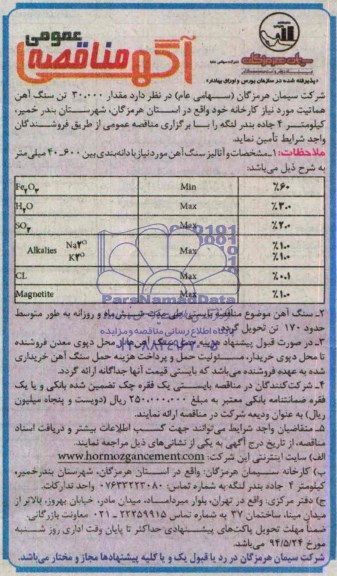 آگهی مناقصه عمومی
سیمان هرمزگان
«پذیرفته شده در سازمان بورس و اوراق بهادار»
شرکت سیمان هرمزگان (سهامی عام) در نظر دارد مقدار ۳۰,۰۰۰ تن سنگ آهن
هماتیت مورد نیاز کارخانه خود واقع در استان هرمزگان، شهرستان بندر خمیر،
کیلومتر ۴ جاده بندر لنگه را با برگزاری مناقصه عمومی از طریق فروشندگان
واجد شرایط تأمین نماید.
ملاحظات: ۱ـ مشخصات و آنالیز سنگ آهن مورد نیاز با دانه‌بندی بین ۶۰۰ـ۴۰ میلی‌متر
به شرح ذیل می‌باشد:
Fe₂O₃ Min ٪۶۰
H₂O Max ٪۳.۰۰
SO₃ Max ٪۲.۰۰
Alkalies Na2O K2O Max ٪۱.۰ ٪۱.۰
CL Max ٪۰.۱
Magnetite Max ٪۱۰.۰
ParsNamadData
پایگاه اطلاع رسانی مناقصه و مزایده
۲ـ سنگ آهن موضوع مناقصه بایستی طی مدت شش ماه و روزانه به طور متوسط
حدود ۱۷۰ تن تحویل گردد.
۳ـ در صورت قبول پیشنهاد هزینه حمل سنگ آهن از محل دپوی معدن فروشنده
تا محل دپوی خریدار، مسئولیت حمل و پرداخت هزینه حمل سنگ آهن خریداری
شده به عهده فروشنده می‌باشد که بایستی قیمت آنها جداگانه ارائه گردد.
۴ـ شرکت‌کنندگان در مناقصه بایستی یک فقره چک تضمین شده بانکی و یا یک
فقره ضمانتنامه بانکی معتبر به مبلغ ۲۵۰,۰۰۰,۰۰۰ ریال (دویست و پنجاه میلیون
ریال) به عنوان ودیعه شرکت در مناقصه ارائه نمایند.
۵ـ متقاضیان واجد شرایط می‌توانند جهت کسب اطلاعات بیشتر و دریافت اسناد
مناقصه، از تاریخ درج آگهی به یکی از نشانی‌های ذیل مراجعه نمایند.
الف) سایت اینترنتی این شرکت: www.hormozgancement.com
ب) کارخانه سیمان هرمزگان: واقع در استان هرمزگان، شهرستان بندرخمیر،
کیلومتر ۴ جاده بندر لنگه به شماره تماس: ۰۷۶۳۳۲۲۳۰۸۰ واحد تدارکات.
ج) دفتر مرکزی: واقع در تهران، بلوار میرداماد، میدان مادر، خیابان بهروز، بالاتر از
میدان مینا، ساختمان ۳۷ به شماره تماس ۲۲۲۵۹۹۱۵ـ۰۲۱ معاونت بازرگانی.
ضمناً مهلت تحویل پاکت‌های پیشنهادی حداکثر تا پایان وقت اداری روز شنبه
مورخ ۹۴/۵/۲۴ می‌باشد.
شرکت سیمان هرمزگان در رد یا قبول یک و یا کلیه پیشنهادها مجاز و مختار می‌باشد.